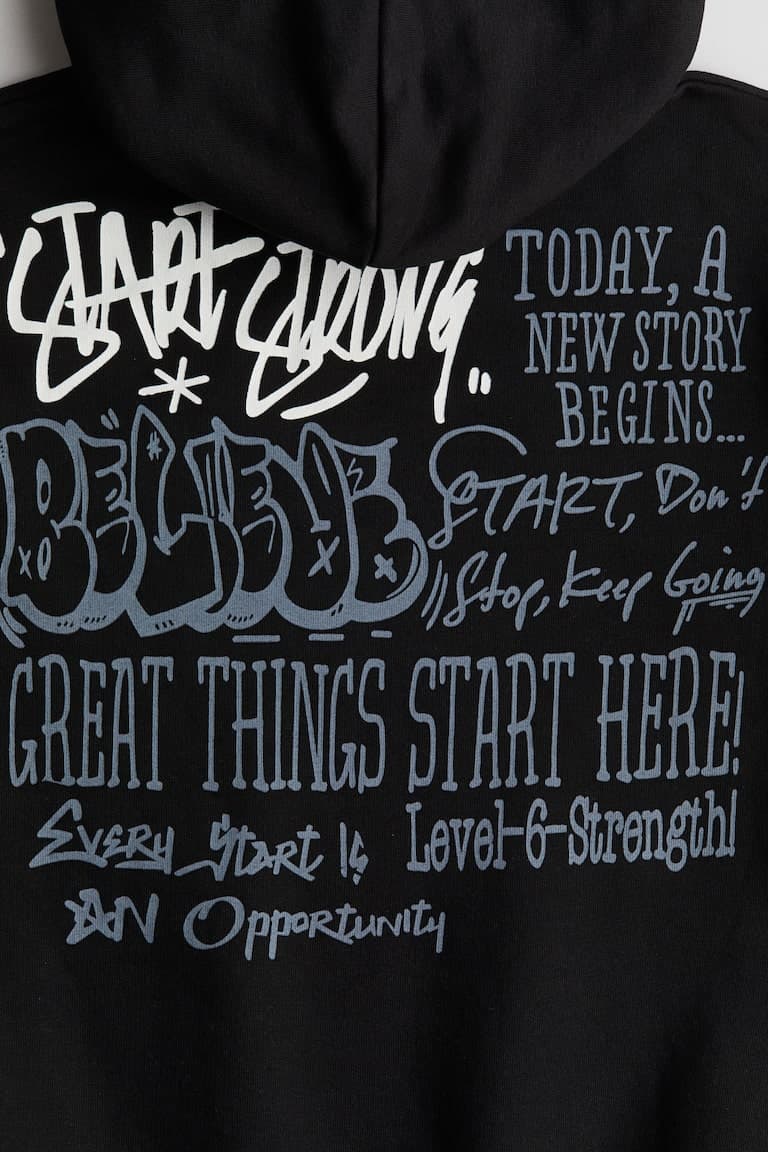 "START STRONG"
TODAY, A
NEW STORY
BEGINS...
BELIEVE
START, Don't
Stop, keep Going
GREAT THINGS START HERE!
Every Start Is
AN Opportunity
Level-6-Strength!